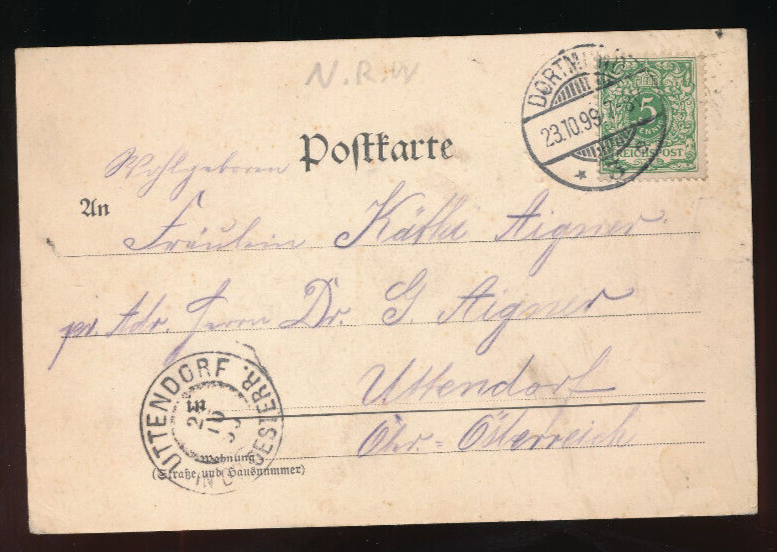 N.R.W
DORTMUND
23.10.99
5
REICHSPOST
Postkarte
Wohlgeboren
An
Fräulein Käthe Aigner
pr. Adr. Herrn Dr. G. Aigner
Uttendorf
Obr.=Österreich
UTTENDORF IN O. OESTERR.
Wohnung
(Straße und Hausnummer)